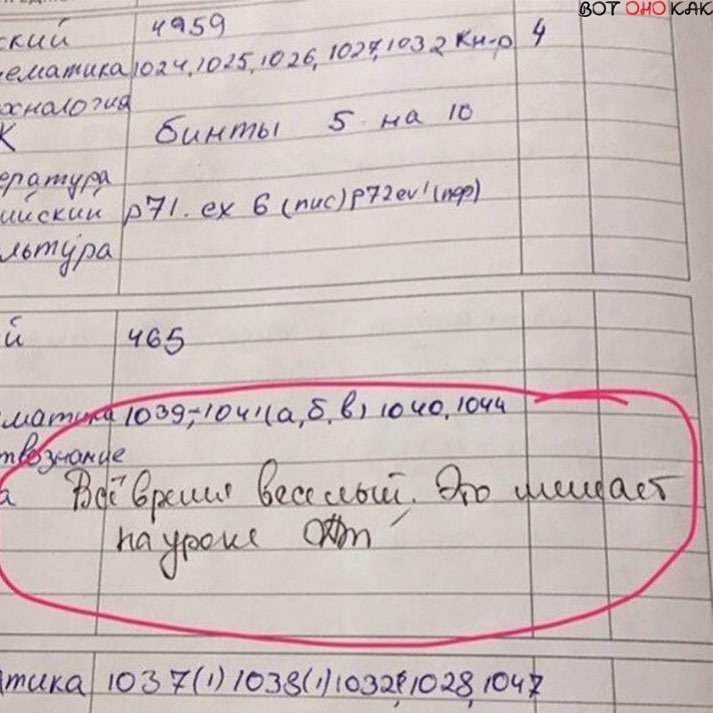 ВОТ ОНО КАК
ский 4959 4
ематика 1024, 1025, 1026, 1027, 1032 Кн-р
хнология
К бинты 5 на 10
ература
ийский p71. ex 6 (пис) p72 ex 1 (пер)
льтура
й 465
матика 1039, 1041(а, б, в) 1040, 1044
твознание
а Всё время веселый. Это мешает
на уроке
тика 1037(1) 1038(1) 1032, 1028, 1047